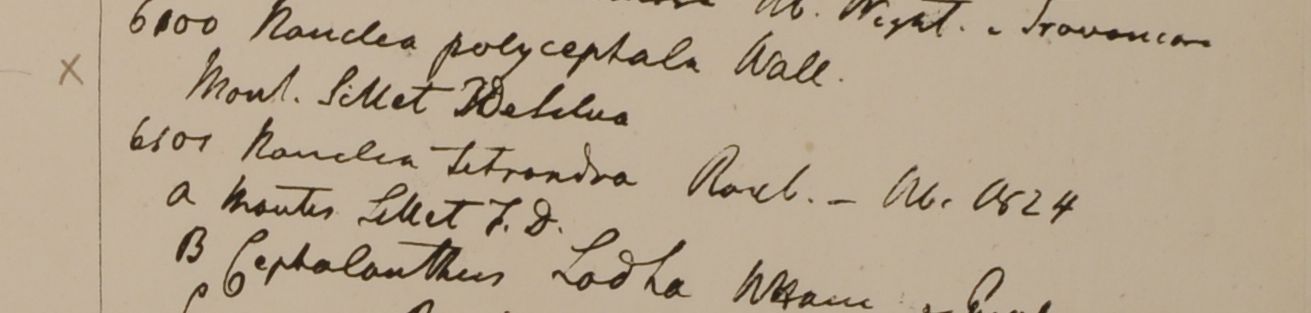 Hb. Wight. Travancore
6100 Nauclea polycephala Wall.
Mont. Sillet Desilva
6101 Nauclea tetrandra Roxb. – Hb. 1824
a Montes Sillet F. D.
B Cephalanthus Lodha